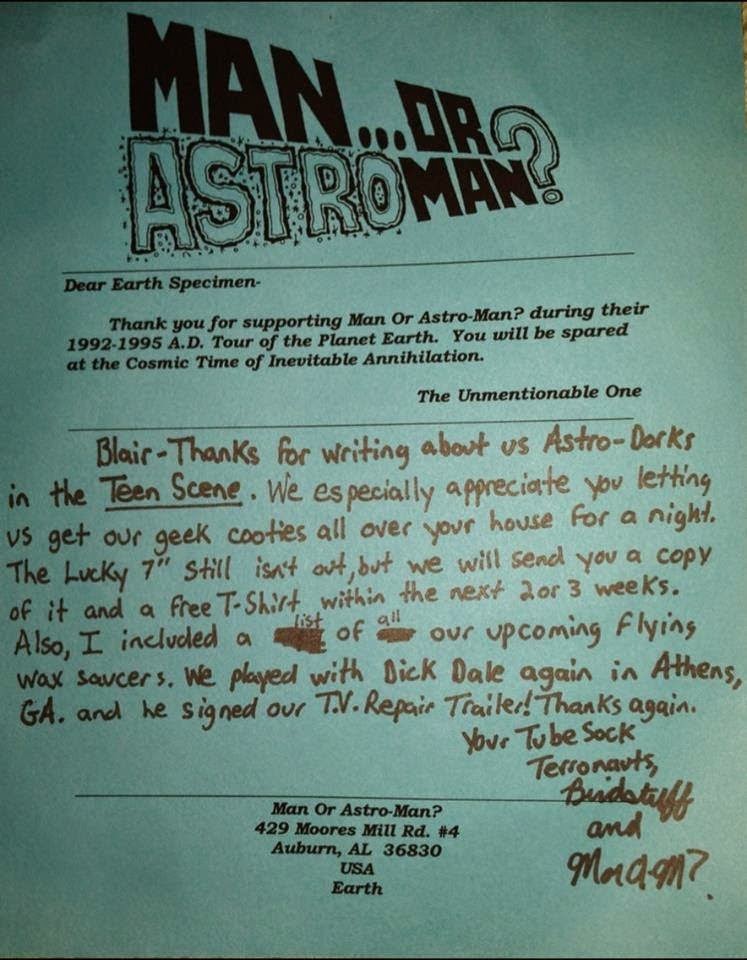 MAN...OR
ASTROMAN?
Dear Earth Specimen-
Thank you for supporting Man Or Astro-Man? during their
1992-1995 A.D. Tour of the Planet Earth. You will be spared
at the Cosmic Time of Inevitable Annihilation.
The Unmentionable One
Blair-Thanks for writing about us Astro-Dorks
in the Teen Scene. We especially appreciate you letting
us get our geek cooties all over your house for a night.
The Lucky 7" still isn't out, but we will send you a copy
of it and a free T-Shirt within the next 2 or 3 weeks.
Also, I included a list of all our upcoming flying
wax saucers. We played with Dick Dale again in Athens,
GA. and he signed our T.V. Repair Trailer! Thanks again.
Your Tube Sock
Terronauts,
Birdstuff
and
MorA-M?
Man Or Astro-Man?
429 Moores Mill Rd. #4
Auburn, AL 36830
USA
Earth